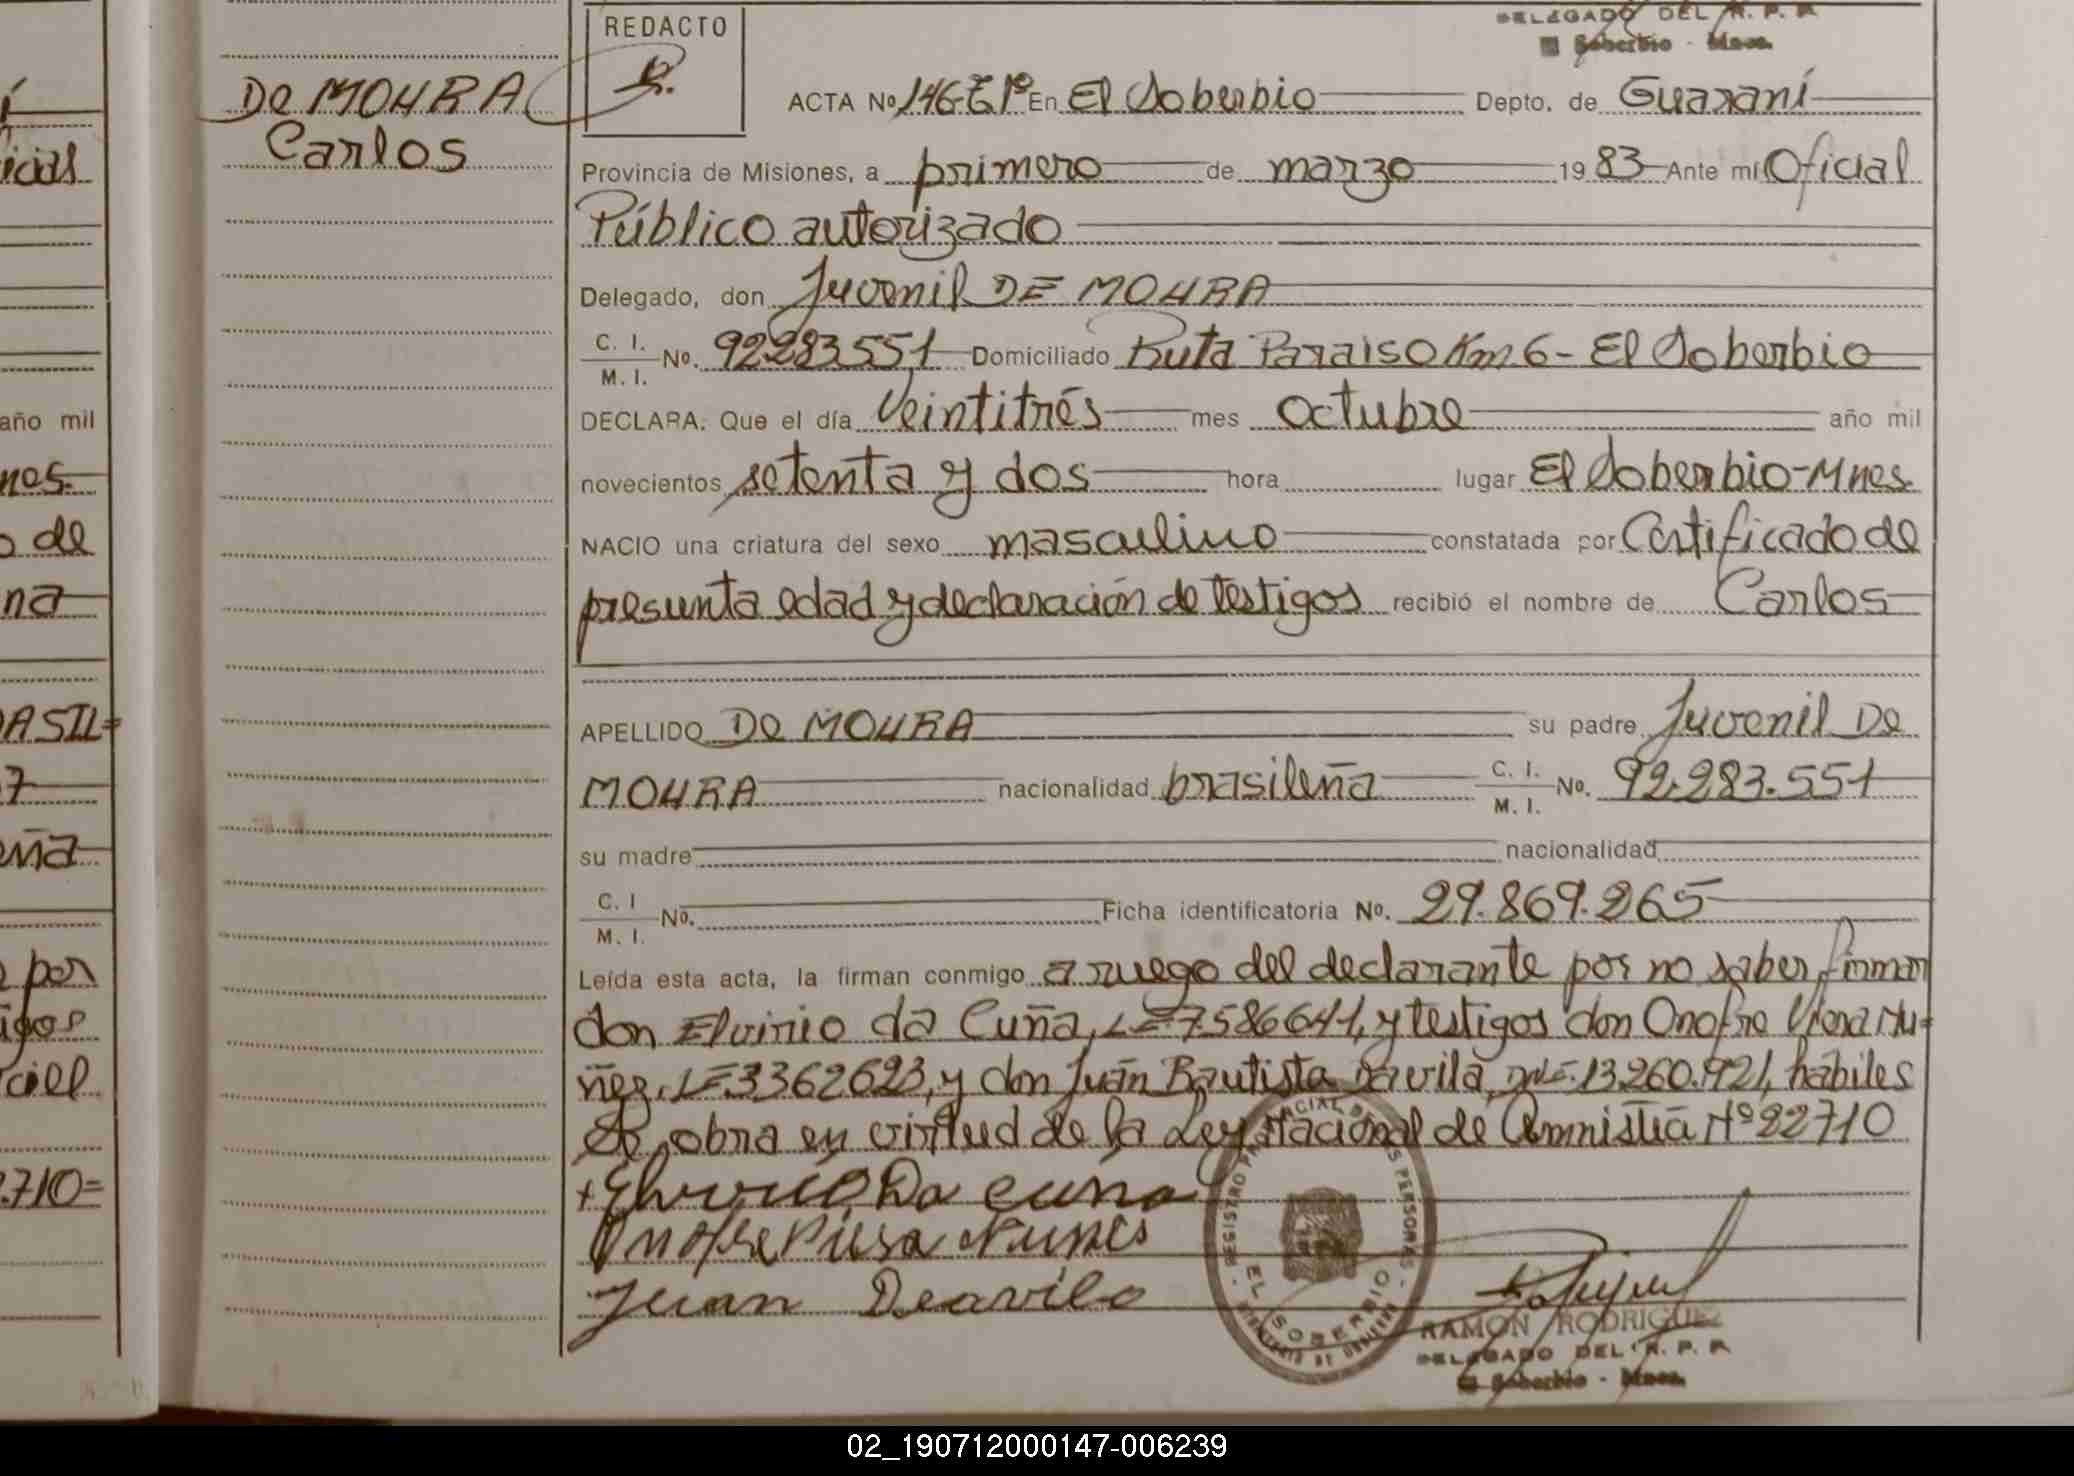 DELEGADO DEL R. P. P.
El Soberbio - Mnes.
REDACTO
DE MOURA
Carlos
ACTA Nº 146-Tº1º En El Soberbio Depto. de Guaraní
Provincia de Misiones, a primero de marzo 1983 Ante mí Oficial
Público autorizado
Delegado, don Juvenil DE MOURA
C. I.
M. I. Nº. 92283551 Domiciliado Ruta Paraiso Km 6 - El Soberbio
DECLARA: Que el día Veintitrés mes octubre año mil
novecientos setenta y dos hora lugar El Soberbio-Mnes.
NACIO una criatura del sexo masculino constatada por Certificado de
presunta edad y declaración de testigos recibió el nombre de Carlos
APELLIDO De MOURA su padre Juvenil De
MOURA nacionalidad brasileña C. I.
M. I. Nº. 92.283.551
su madre nacionalidad
C. I
M. I. Nº. Ficha identificatoria Nº. 29.869.265
Leída esta acta, la firman conmigo a ruego del declarante por no saber firmar
don Elvirio da Cuña, LE 7586641, y testigos don Onofre Viera Nu-
ñez, LE 3362623, y don Juán Bautista Davila, DNI. 13.260.921, hábiles
Se obra en virtud de la Ley Nacional de Amnistía Nº 22710
Elvirio Da cuna
Onofre Viera Nunes
Juan Deavila
REGISTRO PROVINCIAL DE LAS PERSONAS
EL SOBERBIO
MINISTERIO DE GOBIERNO
RAMON RODRIGUEZ
DELEGADO DEL R. P. P.
El Soberbio - Mnes.
año mil
nes.
o de
na
DA SIL=
7
eña
por
tigos
2.710=
02_190712000147-006239